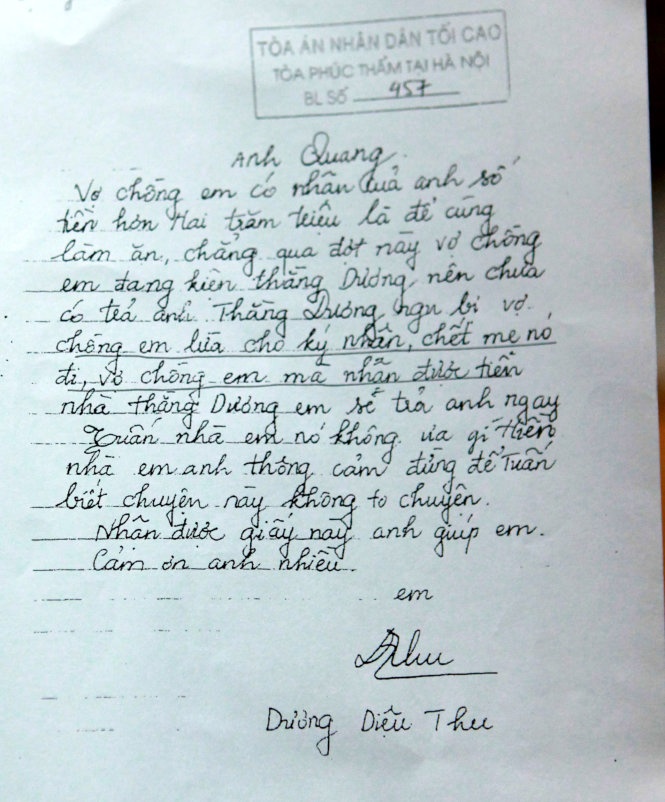 TÒA ÁN NHÂN DÂN TỐI CAO
TÒA PHÚC THẨM TẠI HÀ NỘI
BL SỐ 457
Anh Quang.
Vợ chồng em có nhân quả anh số
tiền hơn Hai trăm triệu là để cùng
làm ăn, chẳng qua đợt này vợ chồng
em đang kiện thằng Dương, nên chưa
có trả anh Thằng Dương ngu bị vợ
chồng em lừa cho ký nhận, chết mẹ nó
đi, vợ chồng em mà nhận được tiền
nhà thằng Dương em sẽ trả anh ngay
Tuấn nhà em nó không ưa gì Hiền
nhà em anh thông cảm đừng để Tuấn
biết chuyện này không to chuyện.
Nhận được giấy này anh giúp em.
Cảm ơn anh nhiều.
em
Dương Diệu Thu